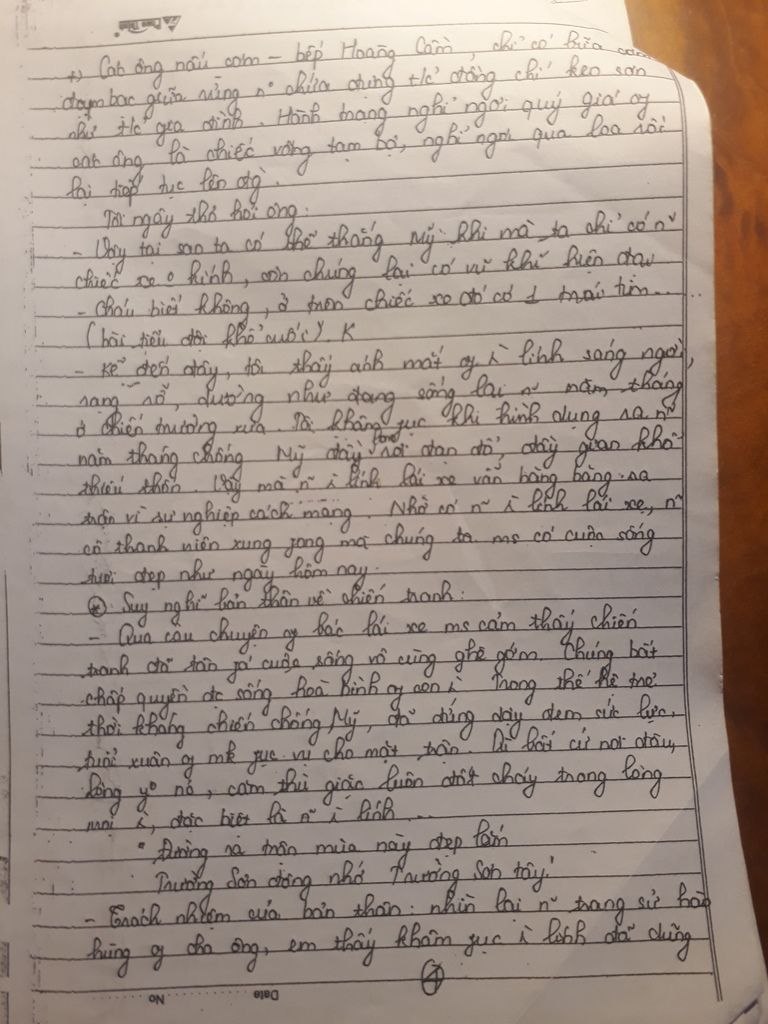 +) Cách ông nấu cơm - bếp Hoàng Cầm, chỉ có bữa cơm
đạm bạc giữa rừng n° chứa chung t/c đồng chí keo sơn
như t/c gia đình. Hành trang nghỉ ngơi quý giá of
cah ông là chiếc võng tạm bợ, nghỉ ngơi qua loa rồi
lại tiếp tục lên đg.
Tôi ngây thơ hỏi ông:
- Vậy tại sao ta có thể thắng Mỹ khi mà ta chỉ có n~
chiếc xe o kính, còn chúng lại có vũ khí hiện đại
- Cháu biết không, ở trên chiếc xe đó có 1 trái tim...
(bài tiểu đội khổ cuối). K
- Kể đến đây, tôi thấy ánh mắt of i lính sáng ngời,
rạng rỡ, dường như đang sống lại n~ năm tháng
ở chiến trường xưa. Tôi khâm fục khi hình dung ra n~
năm tháng chống Mỹ đầy rơi đạn đổ, đầy gian khổ
thiếu thốn. Vậy mà n~ i lính lái xe vẫn băng băng ra
trận vì sự nghiệp cách mạng. Nhờ có n~ i lính lái xe, n~
cô thanh niên xung fong mà chúng ta ms có cuộc sống
tươi đẹp như ngày hôm nay.
* Suy nghĩ bản thân về chiến tranh:
- Qua câu chuyện of bác lái xe ms cảm thấy chiến
tranh đã tàn fá cuộc sống vô cùng ghê gớm. Chúng bất
chấp quyền đc sống hoà bình of con i. Trong thế hệ trẻ
thời kháng chiến chống Mỹ, đã đứng dậy đem sức lực,
tuổi xuân of mk fục vụ cho mặt trận. Dì bất cứ nơi đâu,
lòng y° nc, căm thù giặc luôn đốt cháy trong lòng
mọi i, đặc biệt là n~ i lính...
"Đường ra trận mùa này đẹp lắm
Trường Sơn đông nhớ Trường Sơn tây"
- Trách nhiệm của bản thân: nhìn lại n~ trang sử hào
hùng of cha ông, em thấy khâm fục i lính đã dũng
Date
No